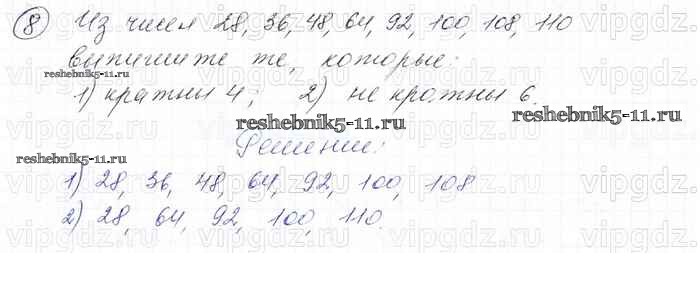 8) Из чисел 28, 36, 48, 64, 92, 100, 108, 110
выпишите те, которые:
1) кратны 4; 2) не кратны 6.
Решение:
1) 28, 36, 48, 64, 92, 100, 108
2) 28, 64, 92, 100, 110.
reshebnik5-11.ru
reshebnik5-11.ru
reshebnik5-11.ru
reshebnik5-11.ru
vipgdz.ru